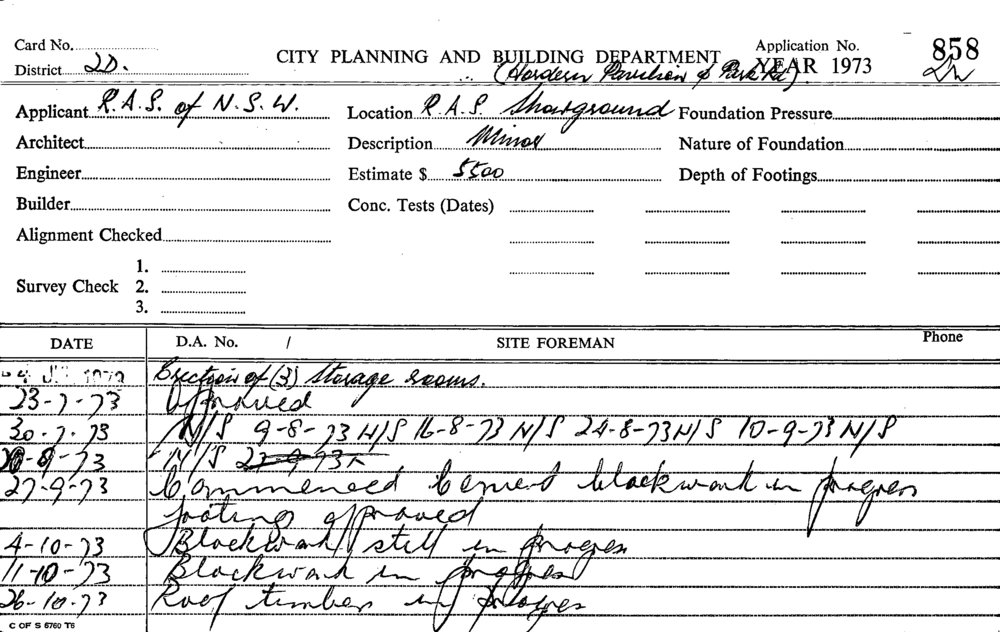 Card No.
CITY PLANNING AND BUILDING DEPARTMENT
Application No. 858
District 2D.
(Hordern Pavilion & Park Rd).
YEAR 1973
Applicant R.A.S. of N.S.W. Location R.A.S. Showground Foundation Pressure
Architect Description Minor Nature of Foundation
Engineer Estimate $ 5500 Depth of Footings
Builder Conc. Tests (Dates)
Alignment Checked
1.
Survey Check 2.
3.
DATE D.A. No. / SITE FOREMAN Phone
Erection of (3) Storage rooms.
23-7-73 Approved
30-7-73 N/S 9-8-73 N/S 16-8-73 N/S 24-8-73 N/S 10-9-73 N/S
N/S
27-9-73 Commenced Cement blockwork in progress
footing approved
4-10-73 Blockwork still in progress
11-10-73 Blockwork in progress
26-10-73 Roof timber in progress
C OF S 6760 T6